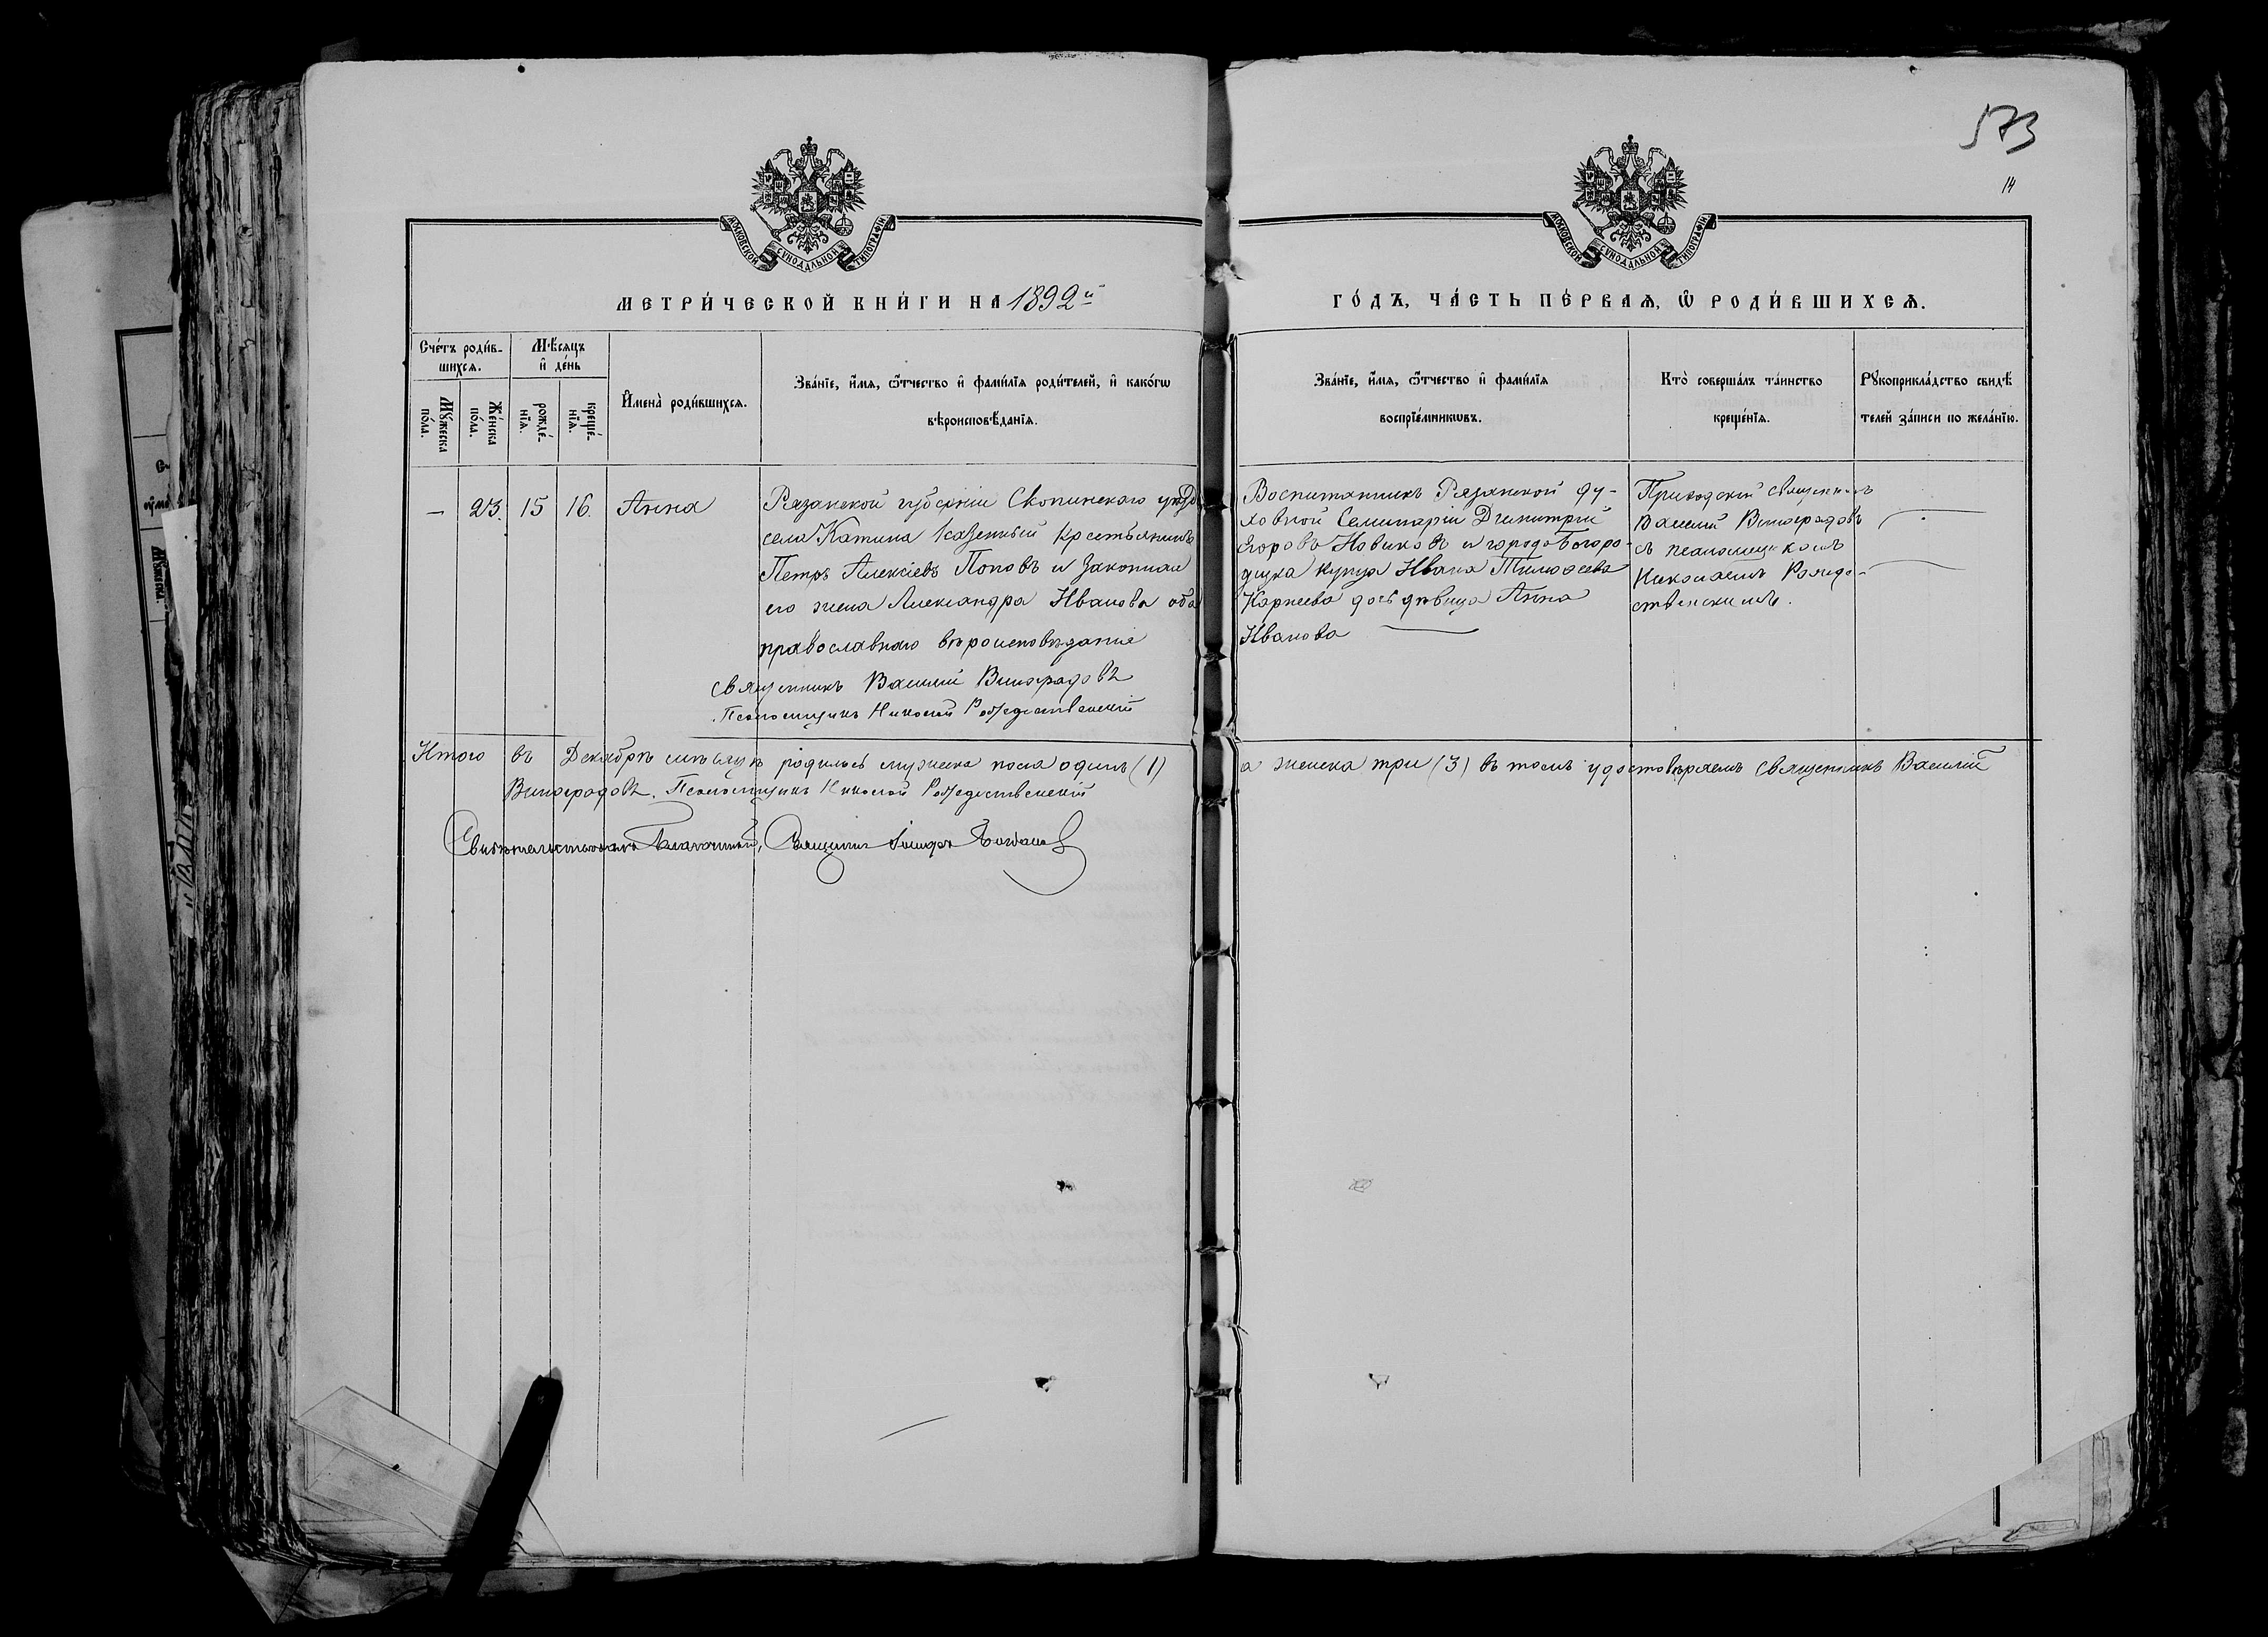 573
14
МОСКОВСКОЙ СѴНОДАЛЬНОЙ ТѴПОГРАФІИ
МОСКОВСКОЙ СѴНОДАЛЬНОЙ ТѴПОГРАФІИ
МЕТРИ́ЧЕСКОЙ КНИ́ГИ НА 1892й
ГО́ДЪ, ЧА́СТЬ ПЕ́РВАѦ, Ѡ҆ РОДИ́ВШИХСѦ.
Сче́тъ роди́в-
шихсѧ.
Мѣ́сѧцъ
и҆ де́нь
Мꙋ́жеска
по́ла.
Же́нска
по́ла.
рожде́-
нїѧ.
креще́-
нїѧ.
И҆мена̀ роди́вшихсѧ.
Зва́нїе, и҆́мѧ, ѻ҆́тчество и҆ фами́лїѧ роди́телей, и҆ како́гѡ
вѣроисповѣ́данїѧ.
Зва́нїе, и҆́мѧ, ѻ҆́тчество и҆ фами́лїѧ
воспрїе́мникѡвъ.
Кто̀ соверша́лъ та́инство
креще́нїѧ.
Рꙋкоприкла́дство свидѣ́
телей за́писи по жела́нїю.
— 23. 15 16. Анна
Рязанской губерніи Скопинскаго уѣзда
села Катина казенный крестьянинъ
Петръ Алексіевъ Поповъ и законная
его жена Александра Иванова оба
православнаго вѣроисповѣданія
священникъ Василій Виноградовъ
Псаломщикъ Николай Рождественскій
Воспитанникъ Рязанской ду-
ховной Семинаріи Димитрій
Егоровъ Новиковъ и города Богоро-
дицка купца Ивана Тимоѳеева
Карнеева дочь дѣвица Анна
Иванова
Приходскій священникъ
Василій Виноградовъ
съ псаломщикомъ
Николаемъ Рожде-
ственскимъ.
Итого въ Декабрѣ мѣсяцѣ родилось мужска пола одинъ (1) а женска три (3) въ томъ удостовѣряемъ священникъ Василій
Виноградовъ. Псаломщикъ Николай Рождественскій
Свидѣтельствовалъ Благочинный, Священникъ